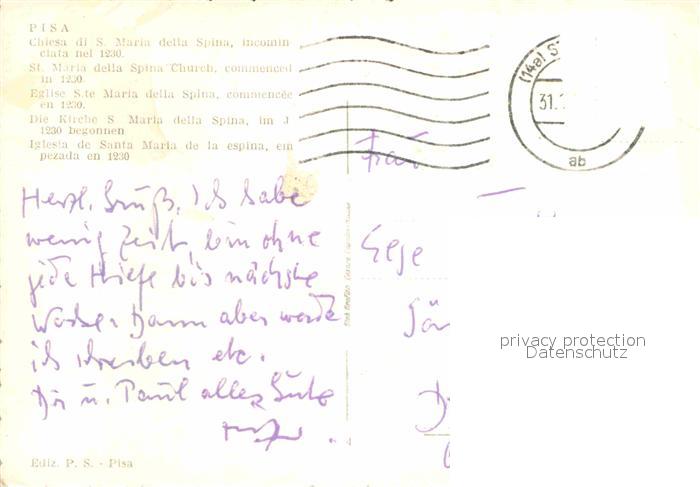 PISA
Chiesa di S. Maria della Spina, incomin
ciata nel 1230.
St. Maria della Spina Church, commenced
in 1230.
Eglise S.te Maria della Spina, commencée
en 1230.
Die Kirche S Maria della Spina, im J
1230 begonnen
Iglesia de Santa Maria de la espina, em
pezada en 1230
(14a) S
31.
ab
Frau
Herzl. Gruß. Ich habe
wenig Zeit, bin ohne
jede Hilfe bis nächste
Woche. Dann aber werde
ich schreiben etc.
Dir u. Paul alles Gute
privacy protection
Datenschutz
Ediz. P. S. - Pisa